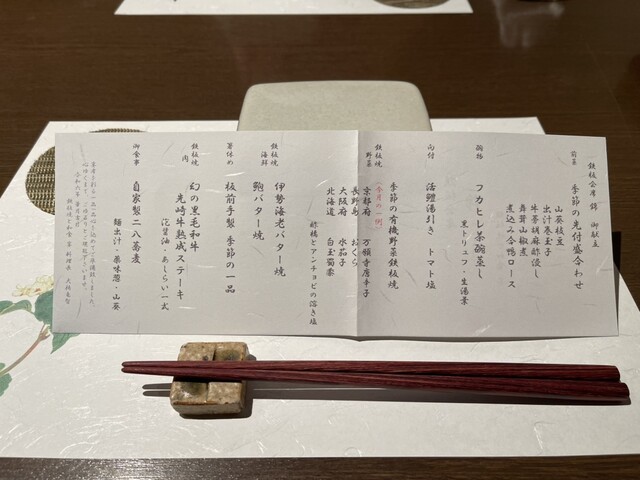 鉄板会席 錦 御献立
前菜
季節の先付盛合わせ
山葵枝豆
出汁巻玉子
牛蒡胡麻酢浸し
舞茸山椒煮
煮込み合鴨ロース
椀物
フカヒレ茶碗蒸し
黒トリュフ・生湯葉
向付
活鱧湯引き トマト塩
鉄板焼
野菜
季節の有機野菜鉄板焼
(今月の一例)
京都府 万願寺唐辛子
長野県 おくら
大阪府 水茄子
北海道 白玉蜀黍
酢橘とアンチョビの溶き塩
鉄板焼
海鮮
伊勢海老バター焼
鮑バター焼
箸休め
板前手製 季節の一品
鉄板焼
肉
幻の黒毛和牛
尾崎牛熟成ステーキ
泥醤油・あしらい一式
御食事
自家製二八蕎麦
麺出汁・薬味葱・山葵